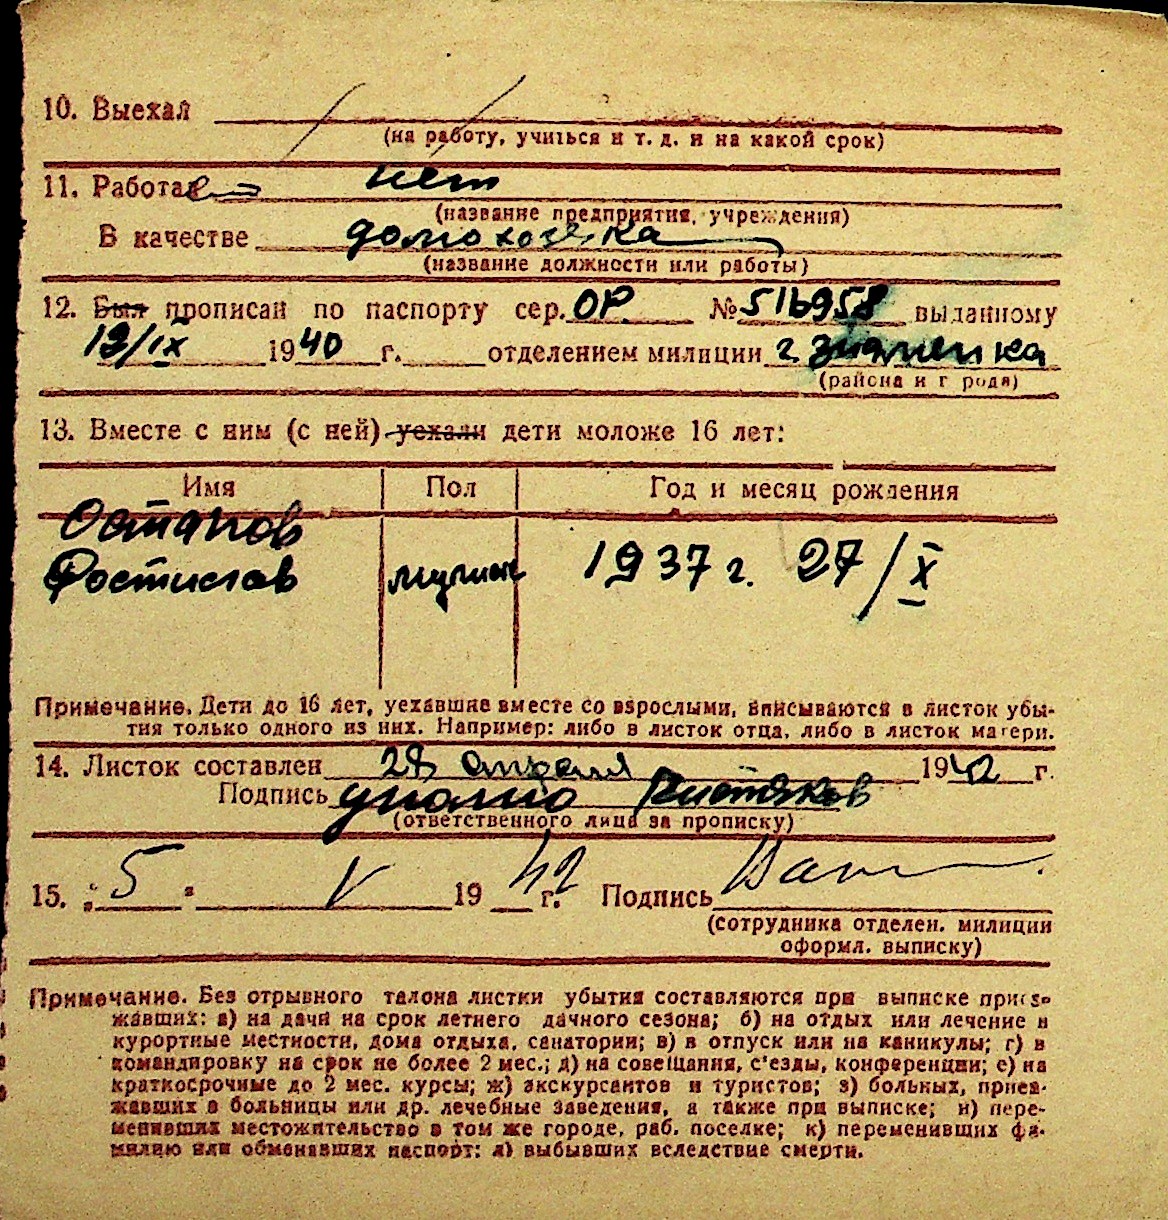 10. Выехал
(на работу, учиться и т. д. и на какой срок)
11. Работает нет
(название предприятия, учреждения)
В качестве домохозяйка
(название должности или работы)
12. Был прописан по паспорту сер. ОР. № 516958 выданному
19/IX 1940 г. отделением милиции г. Знаменка
(района и г рода)
13. Вместе с ним (с ней) уехали дети моложе 16 лет:
Имя Пол Год и месяц рождения
Остапов
Ростислав мужчин 1937 г. 27/X
Примечание. Дети до 16 лет, уехавшие вместе со взрослыми, вписываются в листок убы-
тия только одного из них. Например: либо в листок отца, либо в листок матери.
14. Листок составлен 28 апреля 1942 г.
Подпись
(ответственного лица за прописку)
15. " 5 " V 19 42 г. Подпись
(сотрудника отделен. милиции
оформл. выписку)
Примечание. Без отрывного талона листки убытия составляются при выписке приез-
жавших: а) на дачи на срок летнего дачного сезона; б) на отдых или лечение в
курортные местности, дома отдыха, санатории; в) в отпуск или на каникулы; г) в
командировку на срок не более 2 мес.; д) на совещания, с'езды, конференции; е) на
краткосрочные до 2 мес. курсы; ж) экскурсантов и туристов; з) больных, приез-
жавших в больницы или др. лечебные заведения, а также при выписке; и) пере-
менивших местожительство в том же городе, раб. поселке; к) переменивших фа-
милию или обменявших паспорт; л) выбывших вследствие смерти.